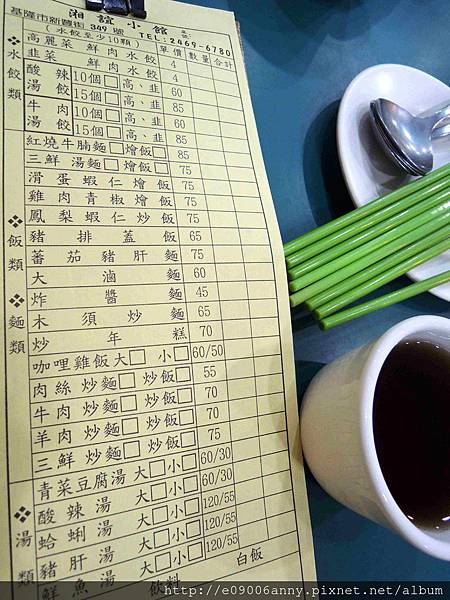 湘誼小館
基隆市新豐街 349 號
(水餃至少10顆) TEL:2469-6780
❖水餃類 單價 數量 合計
高麗菜鮮肉水餃 4
韭菜鮮肉水餃 4
酸辣湯餃 10個□高、韭 60
15個□高、韭 85
牛肉湯餃 10個□高、韭 60
15個□高、韭 85
❖飯類❖麵類
紅燒牛腩麵□燴飯□ 85
三鮮湯麵□燴飯□ 75
滑蛋蝦仁燴飯 75
雞肉青椒燴飯 75
鳳梨蝦仁炒飯 75
豬排蓋飯 65
番茄豬肝麵 75
大滷麵 60
炸醬麵 45
木須炒麵 65
炒年糕 70
咖哩雞飯大□小□ 60/50
肉絲炒麵□炒飯□ 55
牛肉炒麵□炒飯□ 70
羊肉炒麵□炒飯□ 70
三鮮炒麵□炒飯□ 75
❖湯類
青菜豆腐湯大□小□ 60/30
酸辣湯 大□小□ 60/30
蛤蜊湯 大□小□ 120/55
豬肝湯 大□小□ 120/55
鮮魚湯 大□小□ 120/55
飲料 白飯
http://e09006anny.pixnet.net/album